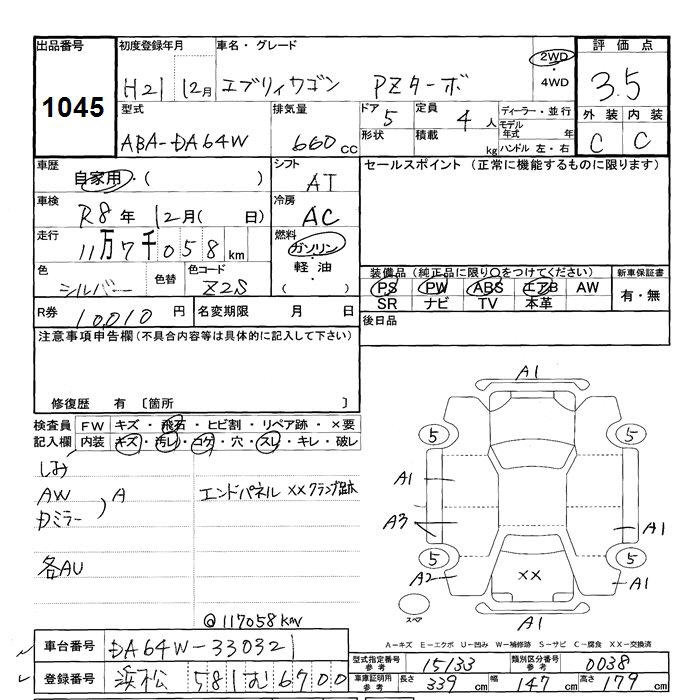 出品番号
1045
初度登録年月
H21 12月
車名・グレード
エブリィワゴン PZターボ
2WD
・
4WD
評価点
3.5
外装 内装
C C
型式
ABA-DA64W
排気量
660 cc
ドア
5
定員
4 人
形状
積載
kg
ディーラー・並行
モデル
年式 年
ハンドル 左・右
車歴
自家用・( )
シフト
AT
セールスポイント (正常に機能するものに限ります)
車検
R8年 12月( 日)
冷房
AC
走行
11万7千058km
燃料
ガソリン
・
軽油
( )
色
シルバー
色替
色コード
Z2S
装備品(純正品に限り〇をつけてください)
PS PW ABS エアB AW
SR ナビ TV 本革
新車保証書
有・無
R券
10,010 円
名変期限 月 日
後日品
注意事項申告欄(不具合内容等は具体的に記入して下さい)
修復歴 有 〔箇所 〕
検査員
記入欄
FW キズ・飛石・ヒビ割・リペア跡・×要
内装 キズ・汚レ・コゲ・穴・スレ・キレ・破レ
しみ
AW
Dミラー
) A
エンドパネル ××クランプ跡
各AU
@117058km
A1
5
5
A1
A3
A1
5
5
A2
××
A1
A1
スペア
A-キズ E-エクボ U-凹み W-補修跡 S-サビ C-腐食 XX-交換済
車台番号 DA64W-330321
登録番号 浜松 581む6700
型式指定番号
参考
15133
類別区分番号
参考
0038
車庫証明用
参考
長さ 339 cm 幅 147 cm 高さ 179 cm